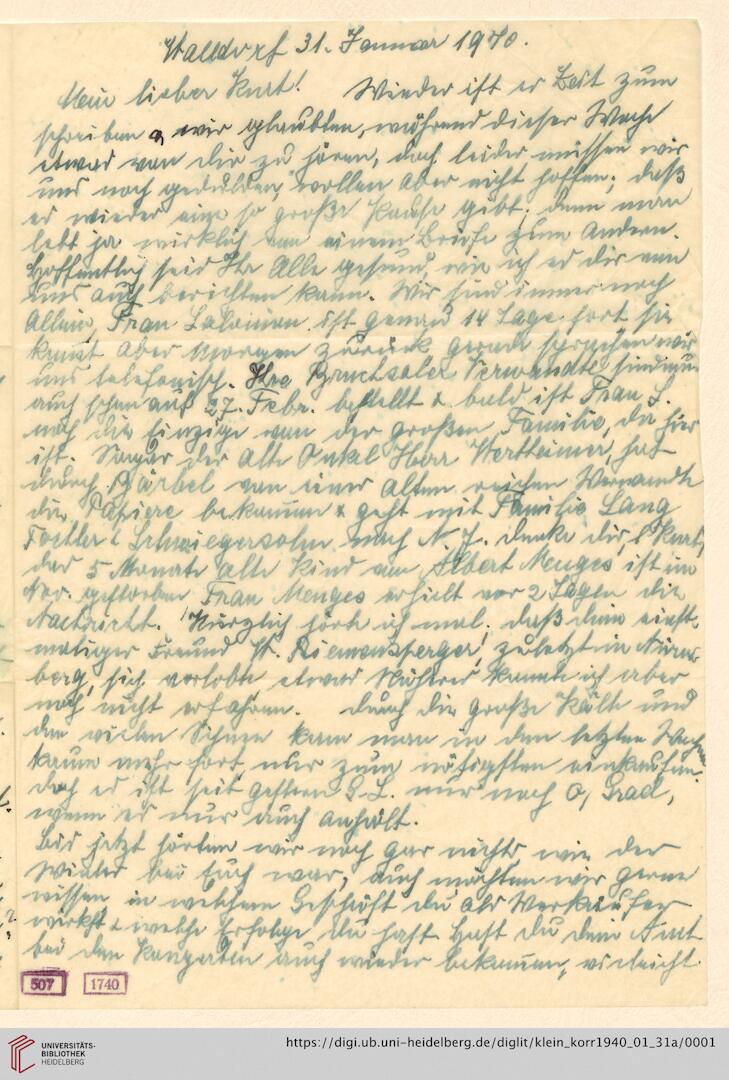 Walldorf 31. Januar 1940.
Mein lieber Kurt! Wieder ist es Zeit zum
schreiben & wir glaubten, während dieser Woche
etwas von dir zu hören, doch leider müssen wir
uns noch gedulden, wollen aber nicht hoffen, daß
es wieder eine so große Pause gibt, denn man
lebt ja wirklich von einem Briefe zum Andern.
Hoffentlich seid Ihr Alle gesund, wie ich es dir von
uns auch berichten kann. Wir sind immer noch
Allein, Frau Salomon ist genau 14 Tage fort sie
kommt aber Morgen zurück gerade sprachen wir
uns telefonisch. Ihre Bruchsaler Verwandte sind nun
auch schon auf 27. Febr. bestellt & bald ist Frau S.
noch die Einzige von der großen Familie, die hier
ist. Sogar der alte Onkel Herr Wertheimer, hat
durch Bärbel von einer alten reichen Verwandte
die Papiere bekommen & geht mit Familie Lang
Tochter & Schwiegersohn nach N. J. denke dir, l. Kurt,
das 5 Monate alte Kind von Albert Menges ist im
Nov. gestorben Frau Menges erhielt vor 2 Tagen die
Nachricht. Kürzlich hörte ich mal, daß dein einst-
maliger Freund H. Riemensperger, zuletzt in Nürn-
berg, sich verlobte etwas Näheres konnte ich aber
noch nicht erfahren. durch die große Kälte und
den vielen Schnee kann man in den letzten Wochen
kaum mehr fort nur zum nötigsten einkaufen.
doch es ist seit gestern G. L. nur noch 0, Grad,
wenn es nur auch anhält.
Bis jetzt hörten wir noch gar nichts wie der
Winter bei Euch war, auch möchten wir gerne
wissen in welchem Geschäft du als Verkäufer
wirkst & welche Erfolge du hast. Hast du dein Amt
bei den Konzerten auch wieder bekommen, vieleicht
507
1740
UNIVERSITÄTS-
BIBLIOTHEK
HEIDELBERG
https://digi.ub.uni-heidelberg.de/diglit/klein_korr1940_01_31a/0001